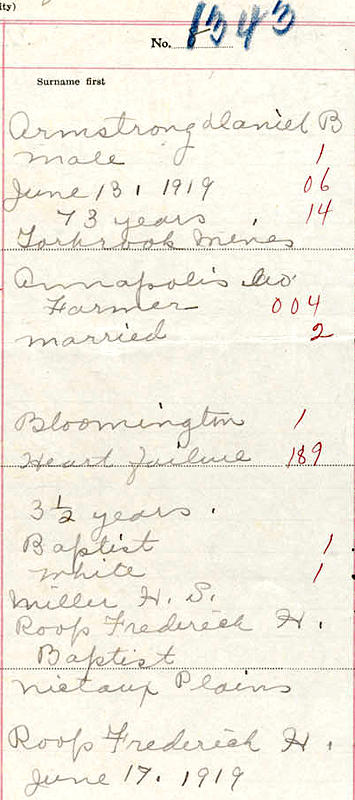 ity)
No. 1343
Surname first
Armstrong Daniel B
Male 1
June 13, 1919 06
73 years, 14
Torbrook Mines
Annapolis Co
Farmer 004
married 2
Bloomington 1
Heart failure 189
3½ years.
Baptist 1
White 1
Miller H. S.
Roop Frederick H.
Baptist
Nictaux Plains
Roop Frederick H.
June 17. 1919